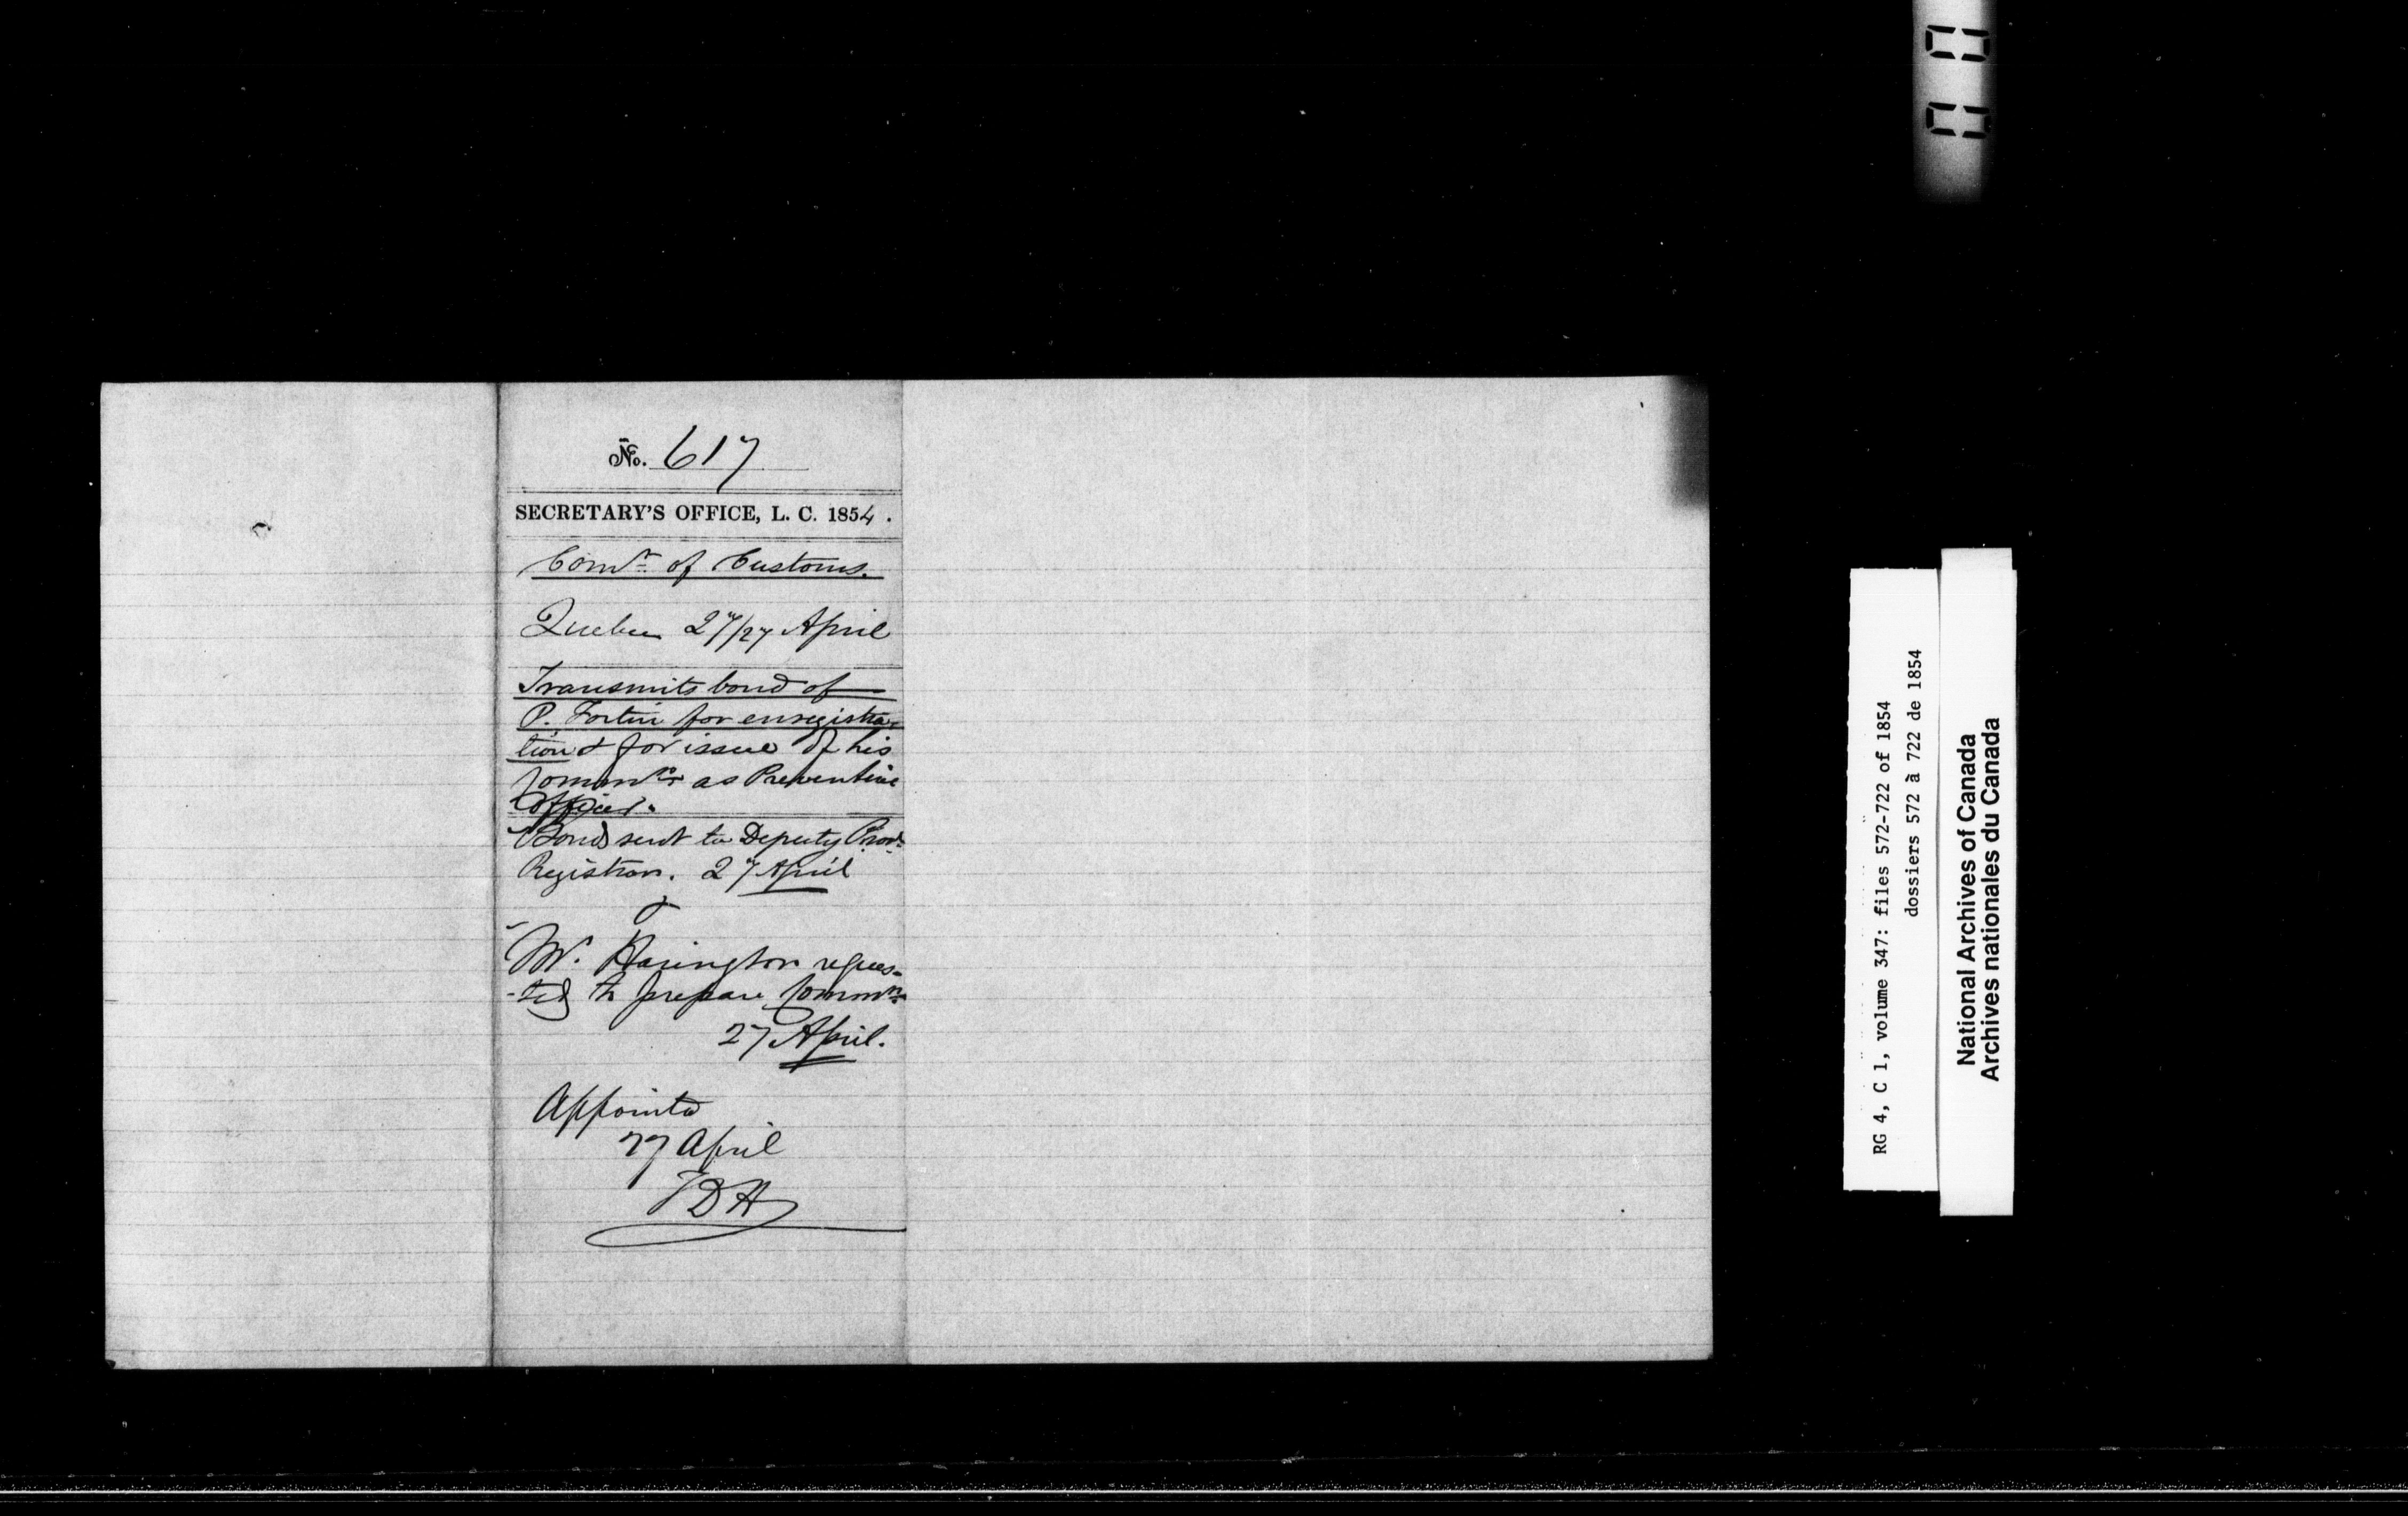 No. 617
SECRETARY'S OFFICE, L. C. 1854.
Comr. of Customs.
Quebec 27/27 April
Transmits bond of
P. Fortin for enregistra-
tion & for issue of his
Commn. as Preventive
Officer.
Bond sent to Deputy Prov.
Registrar. 27 April
&
Mr. Harington reques-
-ted to prepare Commn.
27 April.
Appointed
27 April
TDH
RG 4, C 1, volume 347: files 572-722 of 1854
dossiers 572 à 722 de 1854
National Archives of Canada
Archives nationales du Canada